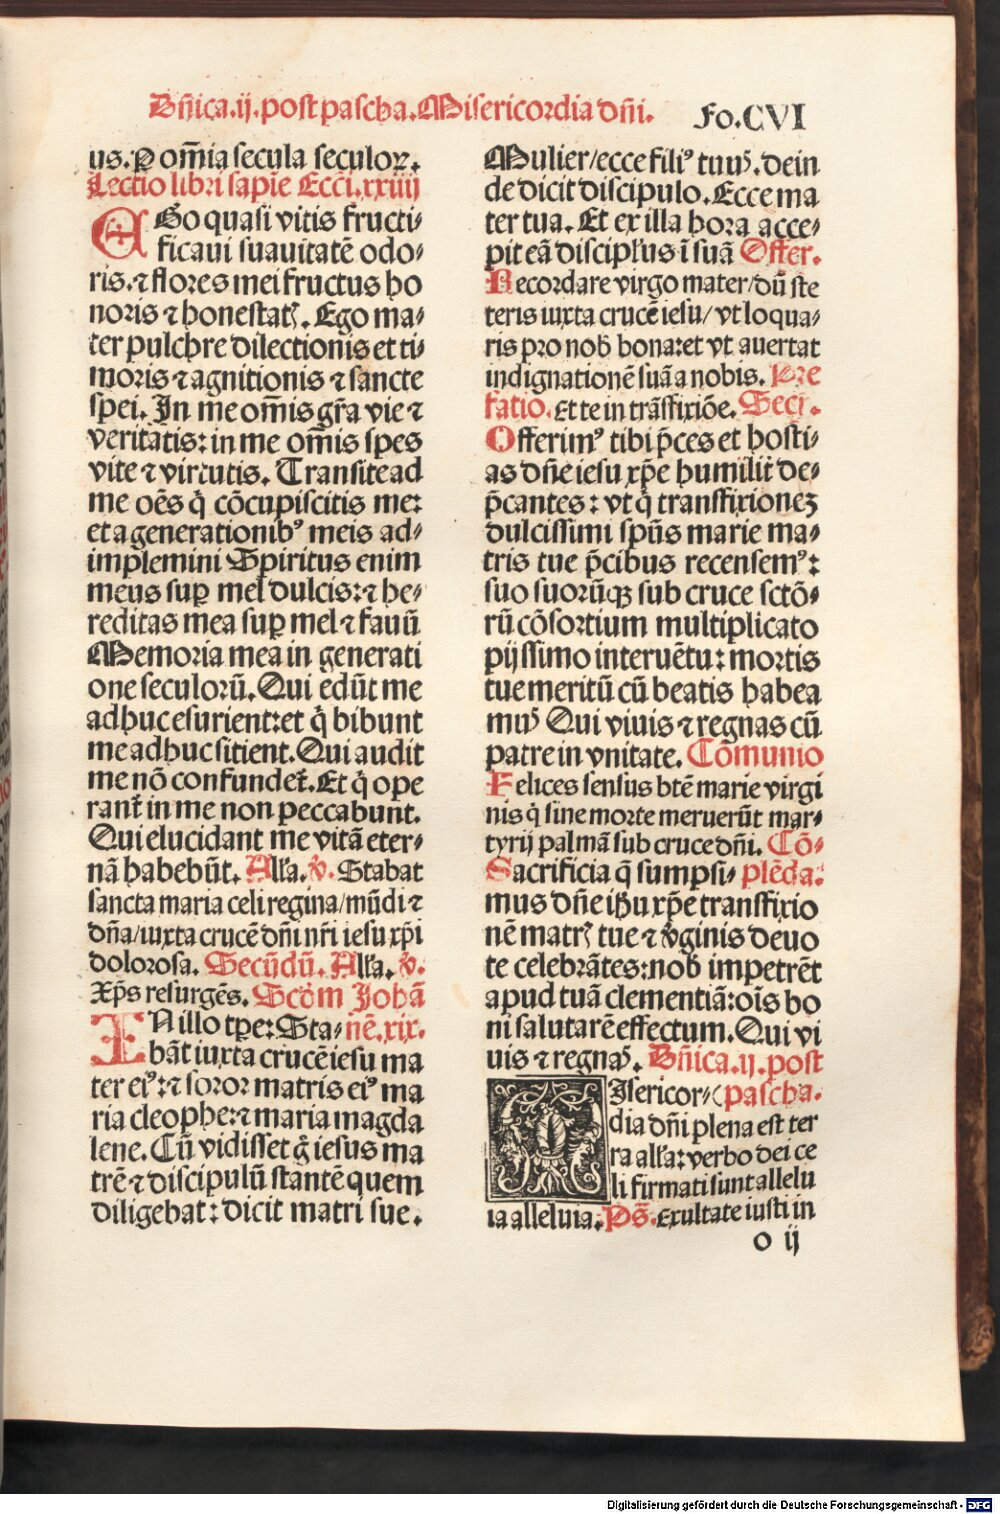 Dñica.ij.post pascha.Misericordia dñi.
Fo.CVI
us.P om̃ia secula seculoꝝ.
Lectio libri sapiẽ Ecci.xxiiij
EGo quasi vitis fructi⸗
ficaui suauitatẽ odo⸗
ris.⁊ flores mei fructus ho
noris ⁊ honestatꝭ. Ego ma⸗
ter pulchre dilectionis et ti⸗
moris ⁊ agnitionis ⁊ sancte
spei. In me om̃is gr̃a vie ⁊
veritatis: in me om̃is spes
vite ⁊ virtutis. Transite ad
me oẽs q̇ cõcupiscitis me:
et a generationibꝰ meis ad⸗
implemini Spiritus enim
meus suꝑ mel dulcis:⁊ he⸗
reditas mea suꝑ mel ⁊ fauũ
Memoria mea in generati
one seculorũ. Qui edũt me
adhuc esurient:et q̇ bibunt
me adhuc sitient.Qui audit
me nõ confundet̃. Et q̇ ope
rant̃ in me non peccabunt.
Qui elucidant me vitã eter⸗
nã habebũt. All'a. ℣. Stabat
sancta maria celi regina/mũdi ⁊
dña/iuxta crucẽ dñi nr̃i iesu xp̃i
dolorosa. Secũdũ. All'a. ℣.
Xp̃s resurgẽs. Scd̃m Johã
IN illo tꝑe: Sta⸗ nẽ.xix.
bãt iuxta crucẽ iesu ma
ter eiꝰ:⁊ soror matris eiꝰ ma
ria cleophe:⁊ maria magda
lene. Cũ vidisset g̊ iesus ma
trẽ ⁊ discipulũ stantẽ quem
diligebat: dicit matri sue.
Mulier/ecce filiꝰ tuuꝰ. dein
de dicit discipulo. Ecce ma
ter tua. Et ex illa hora acce⸗
pit eã discipl'us ĩ suã Offer.
Recordare virgo mater/dũ ste
teris iuxta crucẽ iesu/ vt loqua⸗
ris pro nob̃ bona:et vt auertat
indignationẽ suã a nobis. Pre
fatio. Et te in trãsfixiõe. Secr̃.
Offerimꝰ tibi p̃ces et hosti⸗
as dñe iesu xp̃e humilit̃ de⸗
p̃cantes: vt q̇ transfixioneꝫ
dulcissimi sp̃us marie ma⸗
tris tue p̃cibus recensemꝰ:
suo suorũqꝫ sub cruce sctõ⸗
rũ cõsortium multiplicato
pijssimo interuẽtu: mortis
tue meritũ cũ beatis habea
muꝰ Qui viuis ⁊ regnas cũ
patre in vnitate. Cõmunio
Felices sensus btẽ marie virgi
nis q̇ sine morte meruerũt mar⸗
tyrij palmã sub cruce dñi. Cõ⸗
Sacrificia q̃ sumpsi⸗ plẽda.
mus dñe ih̃u xp̃e transfixio
nẽ matrꝭ tue ⁊ ṽginis deuo
te celebrãtes:nob̃ impetrẽt
apud tuã clementiã:oĩs bo
ni salutarẽ effectum.Qui vi
uis ⁊ regnaꝰ. Dñica.ij.post
MIsericor⸗ pascha.
dia dñi plena est ter
ra all'a: verbo dei ce
li firmati sunt allelu
ia alleluia. Ps̃. Exultate iusti in
o ij
Digitalisierung gefördert durch die Deutsche Forschungsgemeinschaft - DFG